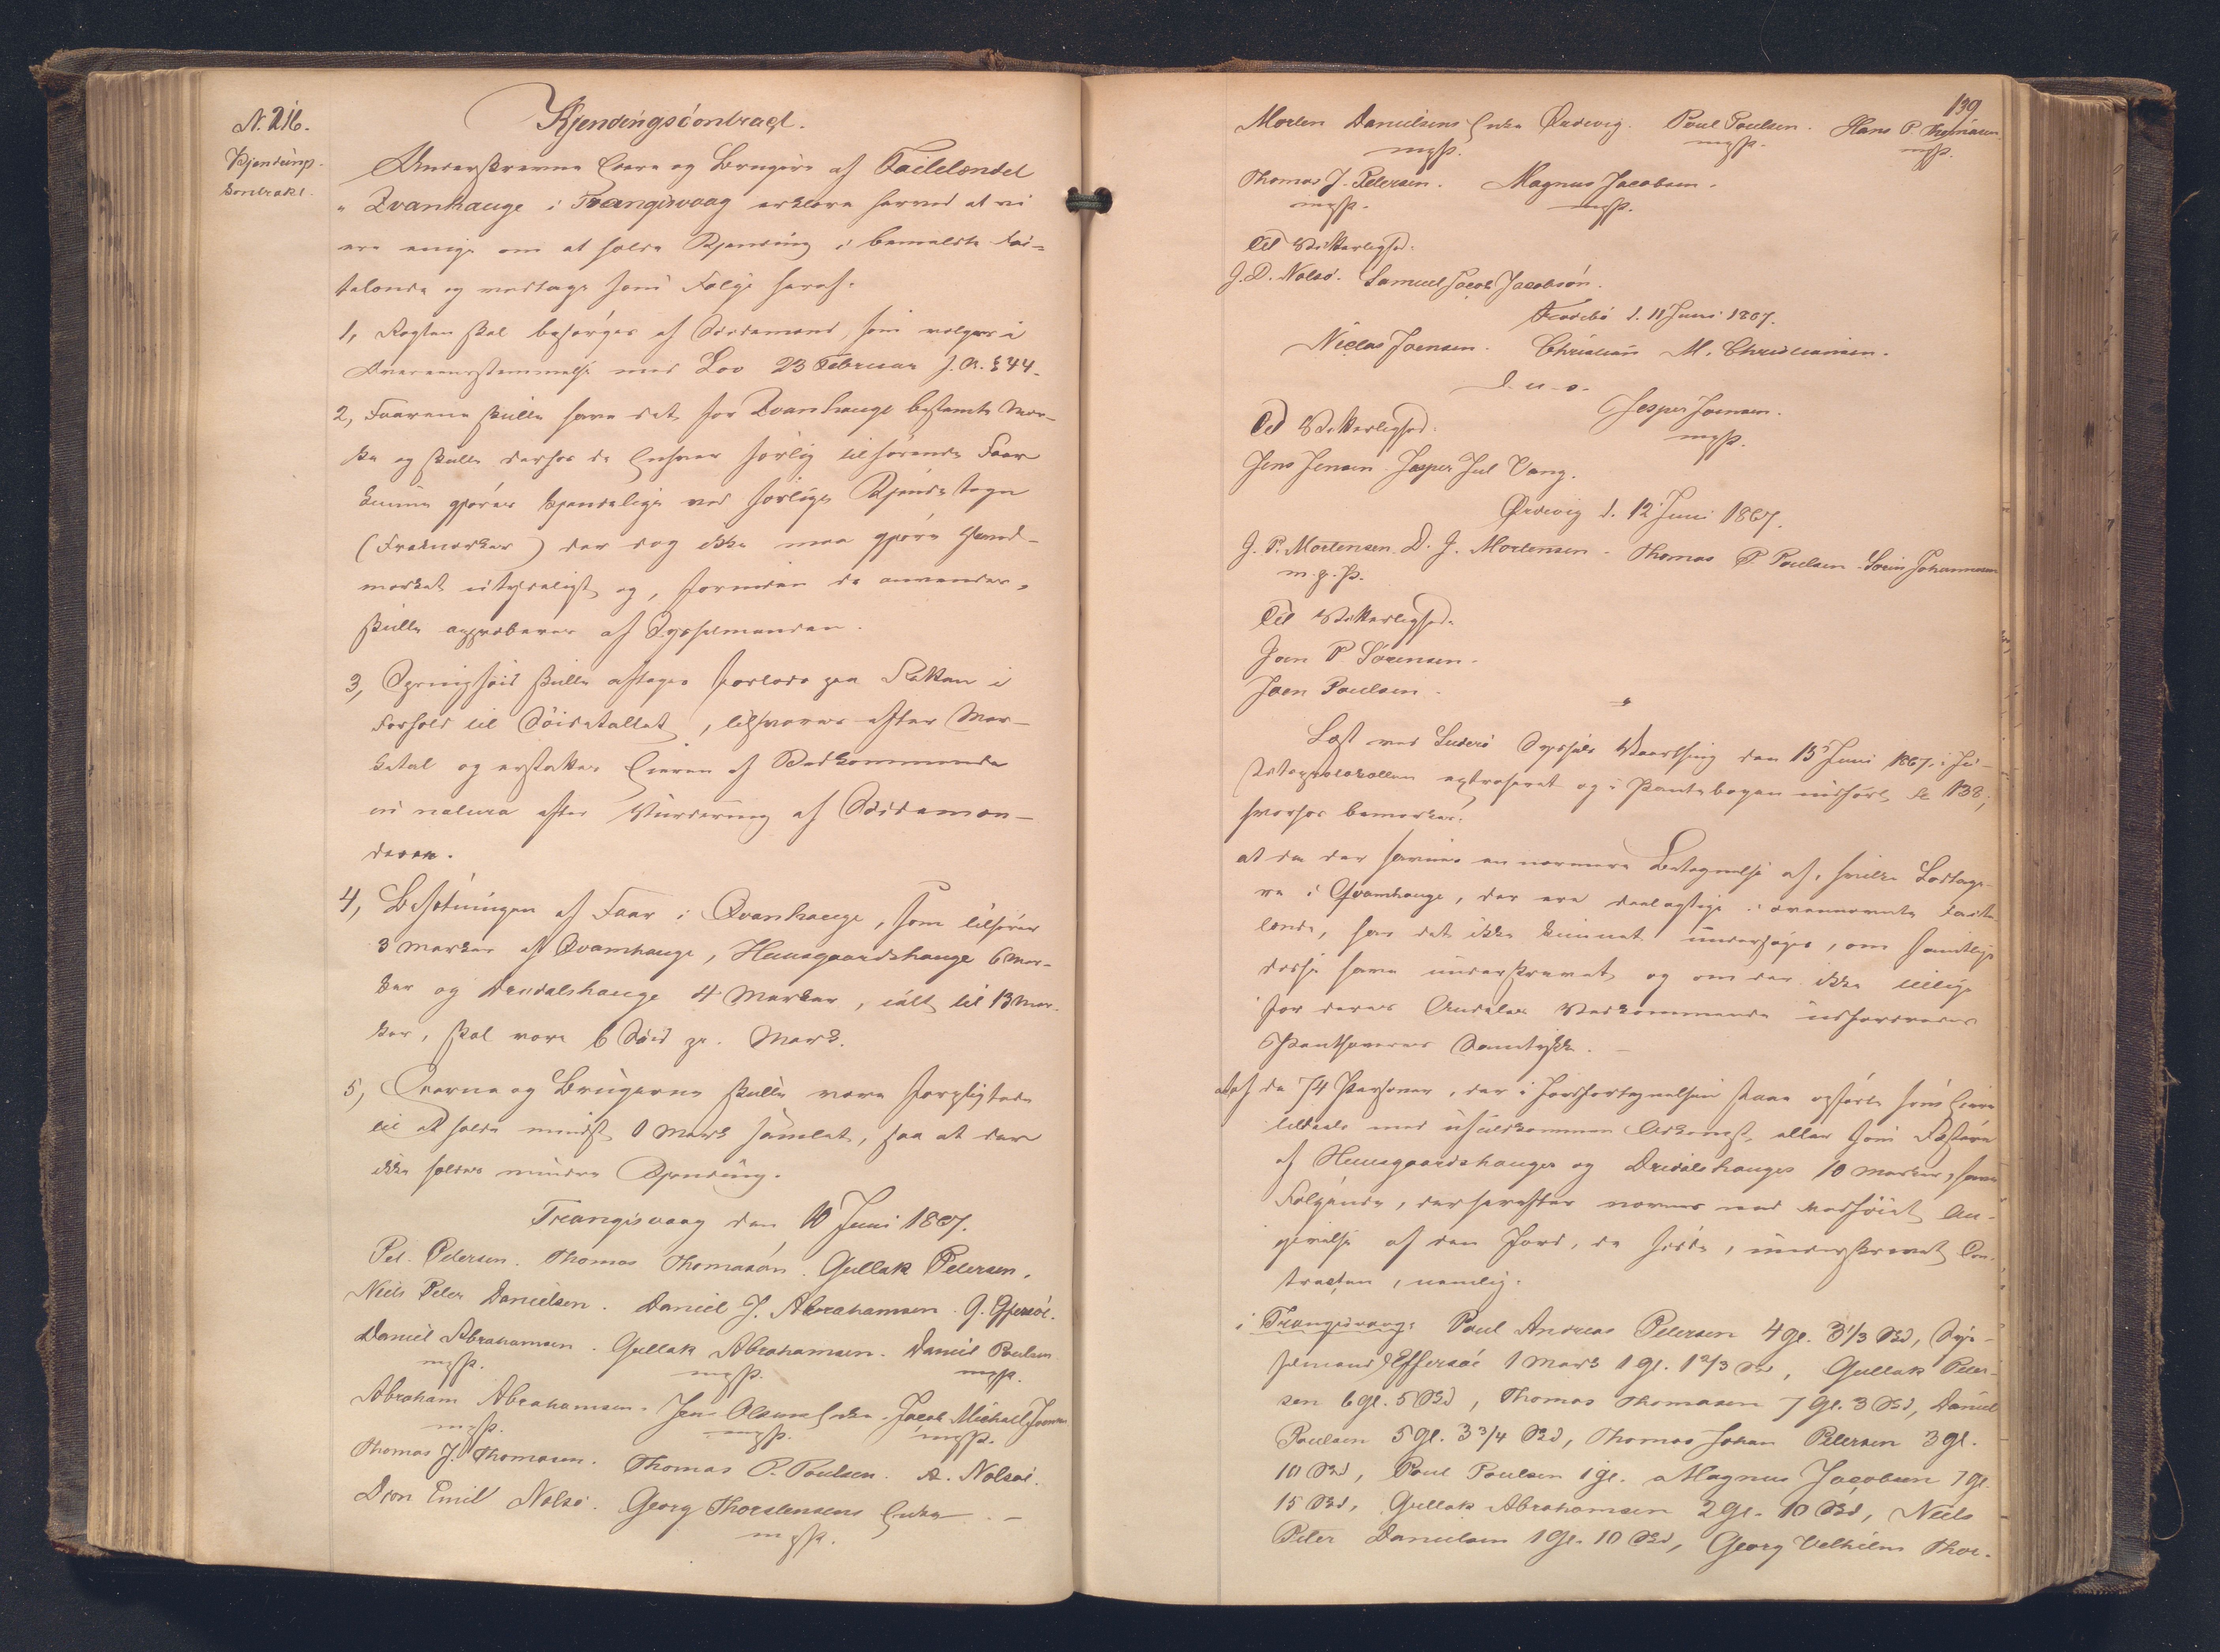 N. 216.
Kjendings-
kontrakt.
Kjendingscontract.
Underskrevne Eiere og Brugere af Faitelendet
"Qvanhauge i Trangisvaag erklære herved at vi
ere enige om at holde Kjending i bemeldte Fai-
telende og vedtage som Følge heraf:
1, Røgten skal besørges af Seidemænd, som vælges i
Overeensstemmelse med Lov 23 Februar f. A. § 44.
2, Faarene skulle have det for Qvanhauge bestemte Mær-
ke og skulle derhos de Enhver særlig tilhørende Faar
kunne gjøres kjendelige ved særlige Kjendetegn
(Fralmærker) der dog ikke maa gjøre Hoved-
mærket utydeligt og, forinden de anvendes,
skulle approberes af Sysselmanden.
3, Springseid skulle aftages forlods paa Rætten i
Forhold til Søidetallet, tilsvares efter Mar-
ketal og erstattes Eieren af Vedkommende
in natura efter Vurdering af Seidemæn-
dene.
4, Besætningen af Faar i Qvanhauge, som tilhører
3 Marker af Qvamhauge, Huusgaardshauge 6 Mar-
ker og Drudalshauge 4 Marker, ialt til 13 Mar-
ker, skal være 6 Søid pr. Mark.
5, Eierne og Brugerne skulle være forpligtede
til at holde mindst 1 Mark samlet, saa at der
ikke holdes mindre Kjending.
Trangisvaag den 10 Juni 1867.
Pet. Petersen. Thomas Thomasøn. Gullak Petersen.
Niels Peter Danielsen. Daniel J. Abrahamsen. G. Effersøe.
Daniel Abrahamsen. Gullak Abrahamsen. Daniel Poulsen
mgp. mgp. mgp.
Abraham Abrahamsen. Jens Olsens Enke. Jacob Michael Joensen
mgp. mgp. mgp.
Thomas J. Thomasen. Thomas P. Poulsen. A. Nolsøe.
Dion Emil Nolsø. Georg Thorstensens Enke
mgp.
139
Morten Danielsens Enke Ørdevig. Poul Poulsen. Hans P. Thomasen
mgp. mgp. mgp.
Thomas J. Petersen. Magnus Jacobsen.
mgp. mgp.
Til Vitterlighed:
J. D. Nolsø. Samuel Jacob Jacobsøn.
Frodebø d. 11 Juni 1867.
Niclas Joensen. Christian M. Christiansen.
d. u. s.
Jesper Joensen.
mgp.
Til Vitterlighed:
Jens Jensen. Jesper Jul Vang.
Ørdevig d. 12 Juni 1867.
J. P. Mortensen. D. J. Mortensen. Thomas P. Poulsen. Søren Johannesen
m. g. p.
Til Vitterlighed:
Joen P Sørensen.
Joen Poulsen.
Læst ved Suderø Syssels Vaarthing den 15 Juni 1867, i Ju-
stitsprotokollen extraheret og i Pantebogen indført fo 138,
hvorhos bemærkes:
at da der savnes en nærmere Betegnelse af, hvilke Lodtage-
re i Qvamhauge, der ere deelagtige i ovennævnte Faite-
lende, har det ikke kunnet undersøges, om samtlige
disse have underskrevet og om der ikke tillige
for deres Andeles Vedkommende udfordres
Panthaveres Samtykke.
at af de 74 Personer, der i Jordfortegnelsen staae opførte som Eiere
tildeels med ufuldkommen Adkomst, eller som Fæstere
af Huusgaardshauges og Drudalshauges 10 Marker, have
Følgende, der herefter nævnes med vedføiet An-
givelse af den Jord, de sidde, underskrevet Con-
tracten, nemlig:
i Trangisvaag: Poul Andreas Petersen 4 gl. 3 1/3 Skd, Sys-
selmand Effersøe 1 Mark 1 gl. 1 2/3 Skd, Gullak Peter-
sen 6 gl. 5 Skd, Thomas Thomasen 7 gl. 3 Skd, Daniel
Poulsen 5 gl. 3 3/4 Skd, Thomas Johan Petersen 3 gl.
10 Skd, Poul Poulsen 1 gl. Magnus Jacobsen 7 gl.
15 Skd, Gullak Abrahamsen 2 gl. 10 Skd, Niels
Peter Danielsen 1 gl. 10 Skd, Georg Vilhelm Thor-